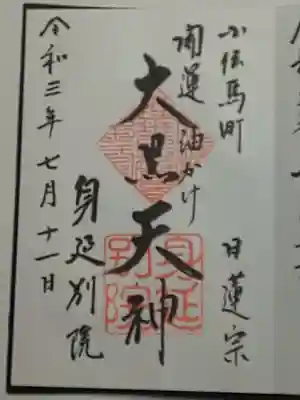 小伝馬町
日蓮宗
開運 油かけ
大黒天神
身延別院
令和三年七月十一日
身延別院